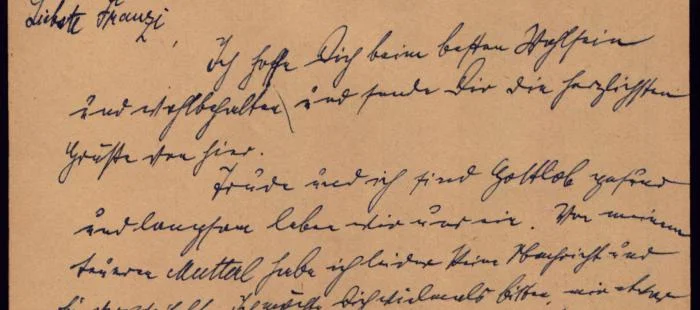 Liebste Franzi,
Ich hoffe Dich beim besten Wohlsein
und wohlbehalten und sende Dir die herzlichsten
Grüße von hier.
Trude und ich sind Gottlob gesund
und langsam leben wir uns ein. Von meinem
teueren Mutterl habe ich leider keine Nachricht und
Ich möchte Dich vielmals bitten, mir etwas